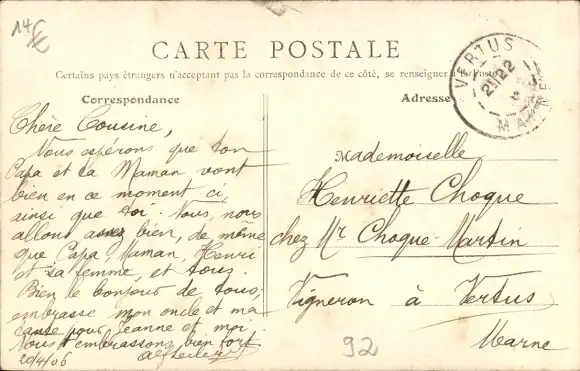 14€
CARTE POSTALE
Certains pays étrangers n'acceptant pas la correspondance de ce côté, se renseigner à la Poste
Correspondance
Adresse
VERTUS
MARNE
22
Chère Cousine,
Nous espérons que ton
Papa et ta Maman vont
bien en ce moment ci,
ainsi que toi. Nous, nous
allons assez bien, de même
que Papa, Maman, Henri
et sa femme, et tous.
Bien le bonjour de tous,
embrasse mon oncle et ma
tante pour Jeanne et moi.
Nous t'embrassons bien fort
20/4/06
Mademoiselle
Henriette Choque
chez Mr Choque-Martin
Vigneron à Vertus
Marne
92